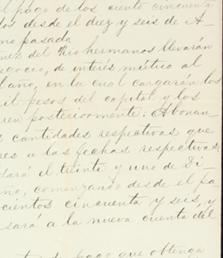 l pago de los ciento cincuenta
los desde el diez y seis de A
mo pasado
nes del Rio hermanos llevarán
gocio, de interés mútuo al
l año, en la cual cargarán los
il pesos del capital y los
ren posteriormente. Abonan
s cantidades respectivas que
res a las fechas respectivas
sará el treinta y uno de Di
no, comenzando desde el pa
cientos cincuenta y seis, y
sará a la nueva cuenta del
pago que obtenga